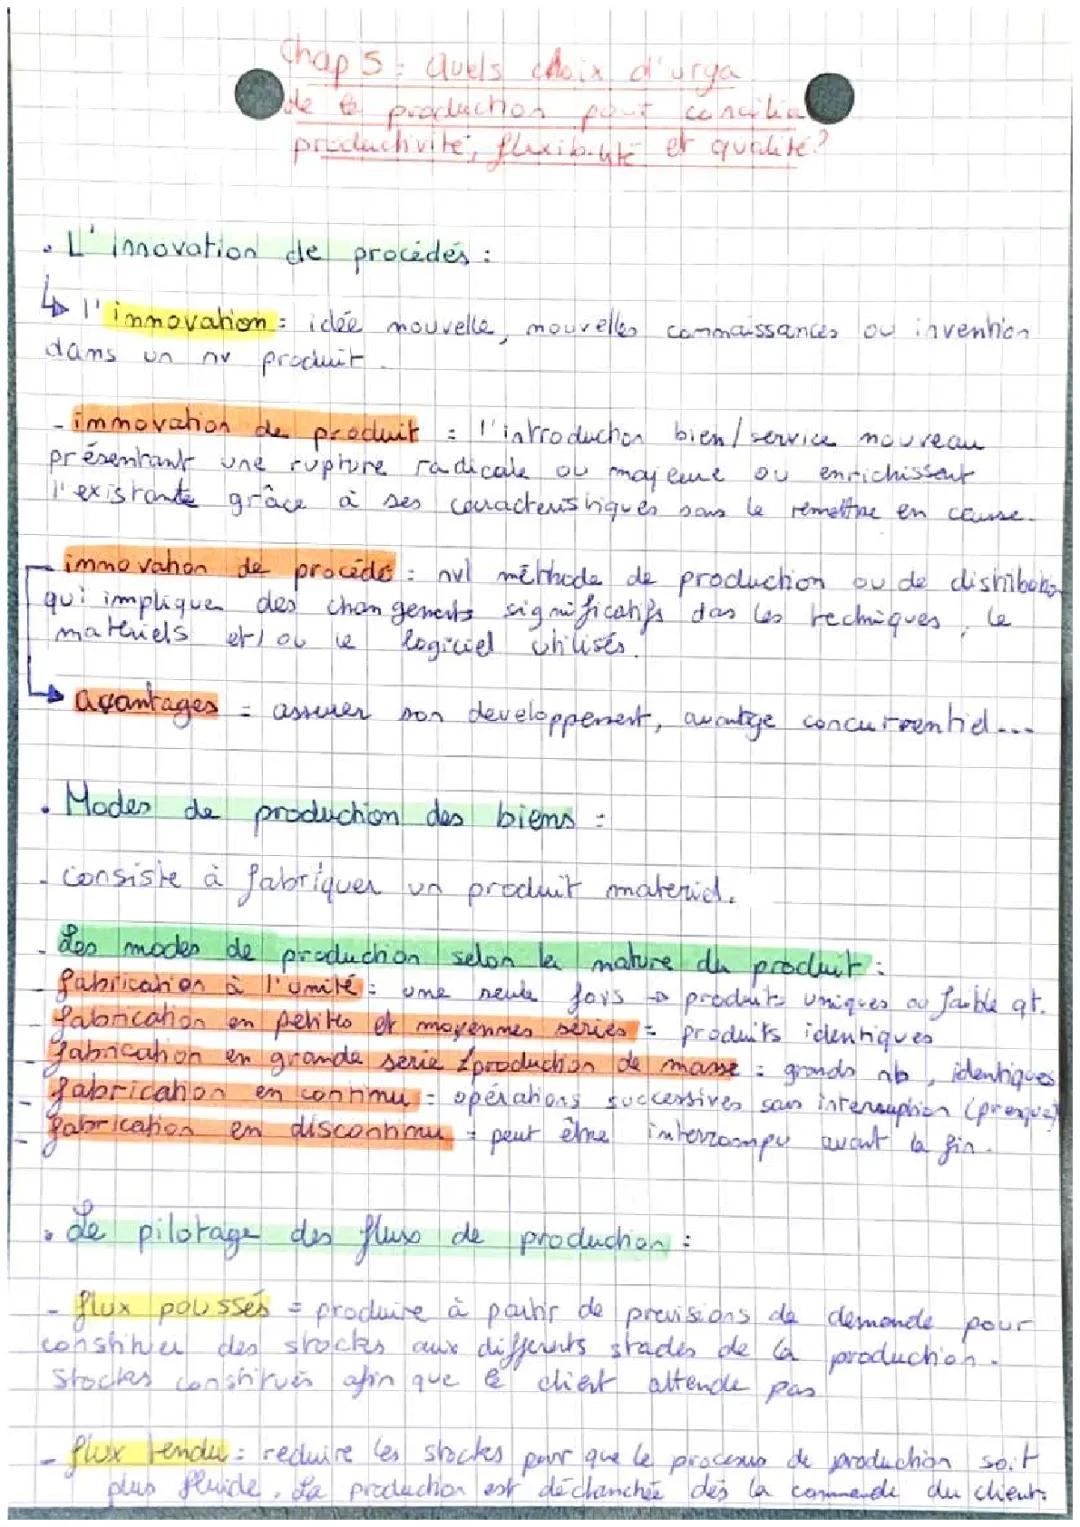 Chap 5 : Quels choix d'orga
de la production pour concilier
productivité, flexibilité et qualité ?
• L'innovation de procédés :
↳ l'innovation = idée nouvelle, nouvelles connaissances ou invention
dans un nv produit.
- innovation de produit = l'introduction bien/service nouveau
présentant une rupture radicale ou majeure ou enrichissant
l'existante grâce à ses caractéristiques sans le remettre en cause.
innovation de procédé : nvl méthode de production ou de distribution
qui implique des changements significatifs das les techniques, le
matériels et/ou le logiciel utilisés.
→ avantages = assurer son developpement, avantage concurrentiel...
• Modes de production des biens :
- consiste à fabriquer un produit materiel.
- Les modes de production selon la nature du produit :
- fabrication à l'unité : une seule fois → produits uniques ou faible qt.
- fabrication en petites et moyennes séries = produits identiques
- fabrication en grande serie / production de masse : grands nb, identiques
- fabrication en continu = opérations successives sans interruption (presque)
- fabrication en discontinu = peut être interrompu avant la fin.
• Le pilotage des flux de production :
- flux poussés = produire à partir de previsions de demande pour
constituer des stocks aux différents stades de la production.
Stocks constitués afin que le client attende pas
- flux tendu : reduire les stocks pour que le processus de production soit
plus fluide. La production est déclanchée dès la commande du client.